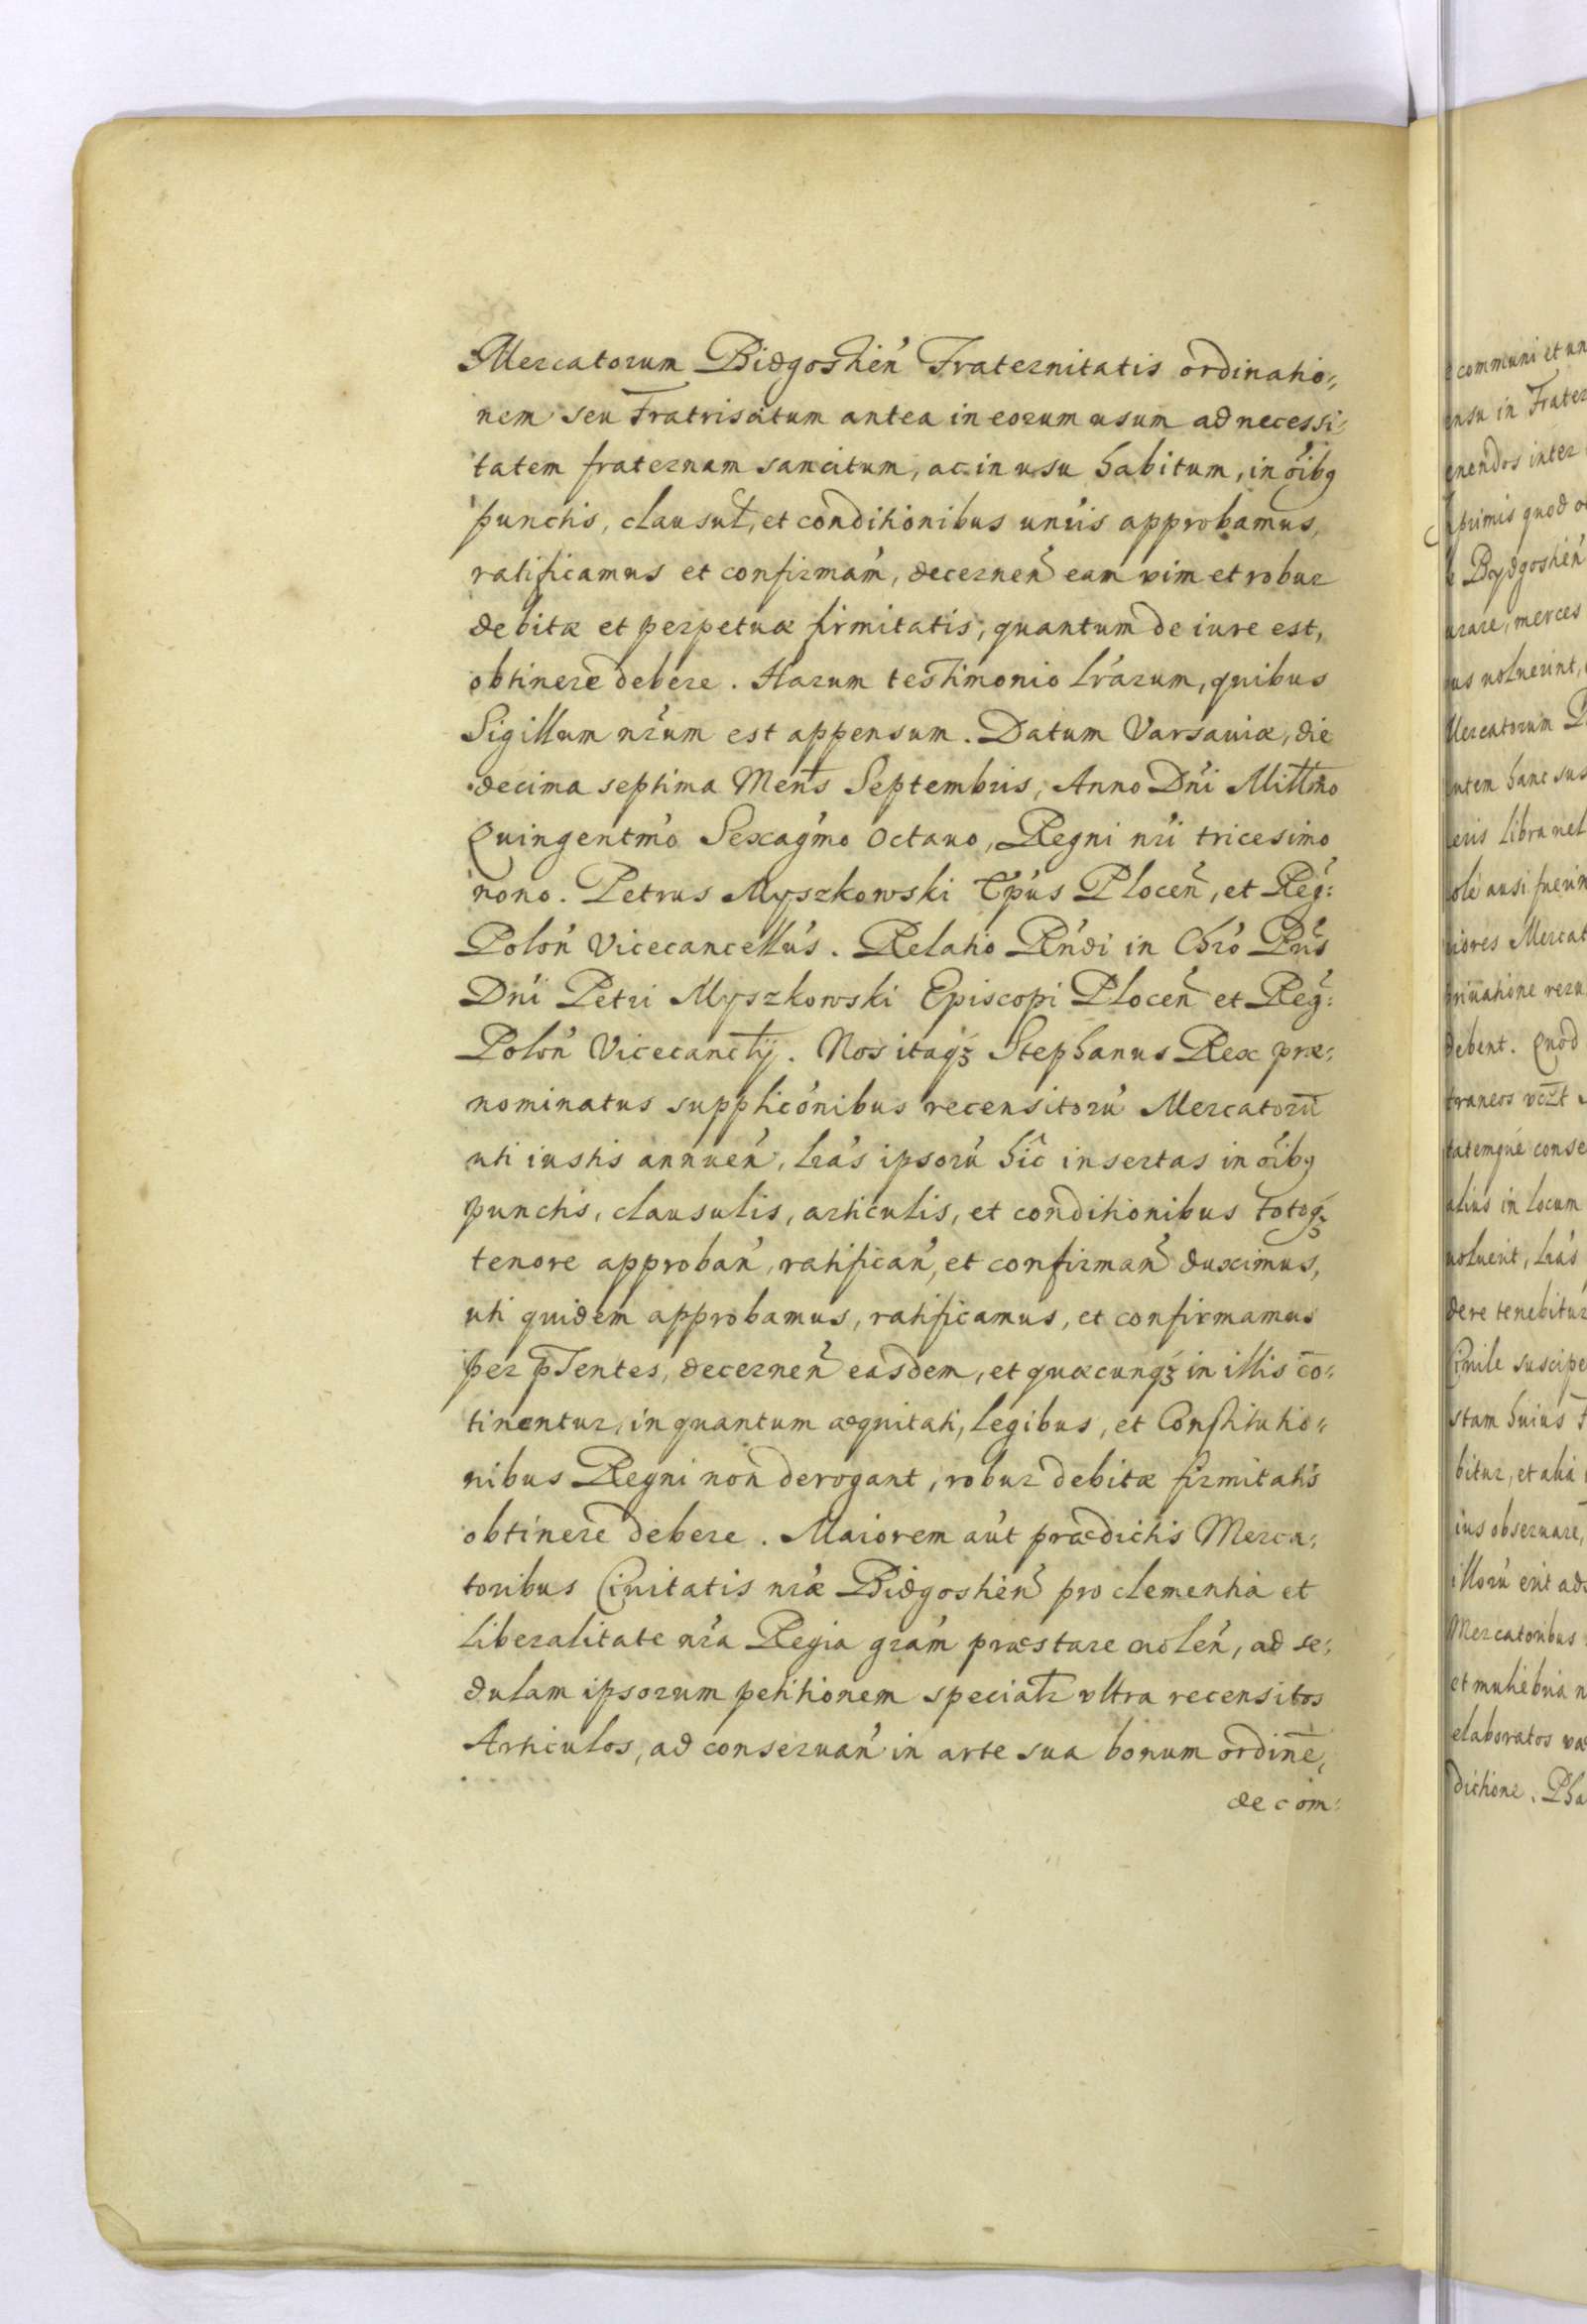 Mercatorum Bidgostień Fraternitatis ordinatio,,
nem seu Fratriscitum antea in eorum usum ad necessi,,
tatem fraternam sancitum, ac in usu habitum, in oíbꝯ
punctis, clausul̃, et conditionibus unúis approbamus,
ratificamus et confirmam̃, decernen̄ eam vim et robur
debitæ et perpetuæ firmitatis, quantum de iure est,
obtinere debere. Harum testimonio lrárum, quibus
Sigillum nrúm est appensum. Datum Varsauiæ, die
decima septima Mens̃ Septembris, Anno Dńi Mittm̃o
Quingentmó Sexagm̃o octauo, Regni nrí tricesimo
nono. Petrus Myszkowski Epús Plocen̄, et Reg̃:
Poloń Vicecancellús. Relatio Rńdi in Chró Prĩs
Dńi Petri Myszkowski Episcopi Plocen̄ et Reg̃:
Poloń Vicecanctĩj. Nos itaqꝫ Stephanus Rex præ,,
nominatus supplicónibus recensitorú Mercatorū
uti iustis annueń, lrás ipsorú hic̃ insertas in oíbꝯ
punctis, clausulis, articulis, et conditionibus totoqꝫ
tenore approbań, ratificań, et confirmań duximus,
uti quidem approbamus, ratificamus, et confirmamus
per pŕſentes, decernen̄ easdem, et quæcunqꝫ in illis cō,,
tinentur, in quantum æquitati, legibus, et Constitutio,,
nibus Regni non derogant, robur debitæ firmitatis
obtinere debere. Maiorem aút prædictis Merca,,
toribus Ciuitatis nræ̃ Bidgostień pro clementia et
liberalitate nrá Regia grám præstare uoleń, ad se,,
dulam ipsorum petitionem speciatr̃ vltra recensitos
Articulos, ad conseruań in arte sua bonum ordinē,
de com:
communi et un
nsu in Frater
enendos inter
primis quod o
Bydgostień
urare, merces
us uoluerint,
Mercatorum
utem hanc sus
eris libra uel
ole ausi fuerin
iores Mercat
inatione reru
debent. Quod
traneos vcz̄t
tatemque conse
alius in locum
uoluerit, lrás
dere tenebitur
Ciuile suscipe
stam huius
bitur, et alia
ius obseruare,
illorú erit ad
Mercatoribus
et muliebria n
elaboratos va
dictione. Pha